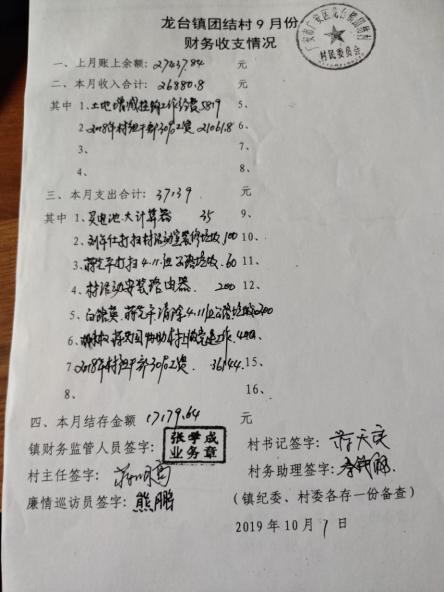 龙台镇团结村9月份
财务收支情况
广安市广安区龙台镇团结村
村民委员会
一、上月账上余额:27437.84 元
二、本月收入合计:26880.8 元
其中 1、土地增减挂钩工作经费5819 5、
2、2018年村组干部30%工资 21061.8 6、
3、 7、
4、 8、
三、本月支出合计:37139 元
其中 1、买电池.大计算器 35 9、
2、刘年仕打扫村活动室装修垃圾100 10、
3、蒋先平打扫4.11社公路垃圾.60 11、
4、村活动安装路由器. 200 12、
5、白银英.蒋先平清除4.11社公路垃圾200
6、 协助村 工作.400
7、2018年村组干部30%工资. 36144. 15、
8、 16、
四、本月结存金额 17179.64 元
镇财务监管人员签字: 张学成 业务章 村书记签字:蒋天
村主任签字:蒋 村务助理签字:
廉情巡访员签字:熊鹏 (镇纪委、村委各存一份备查)
2019年10月7日